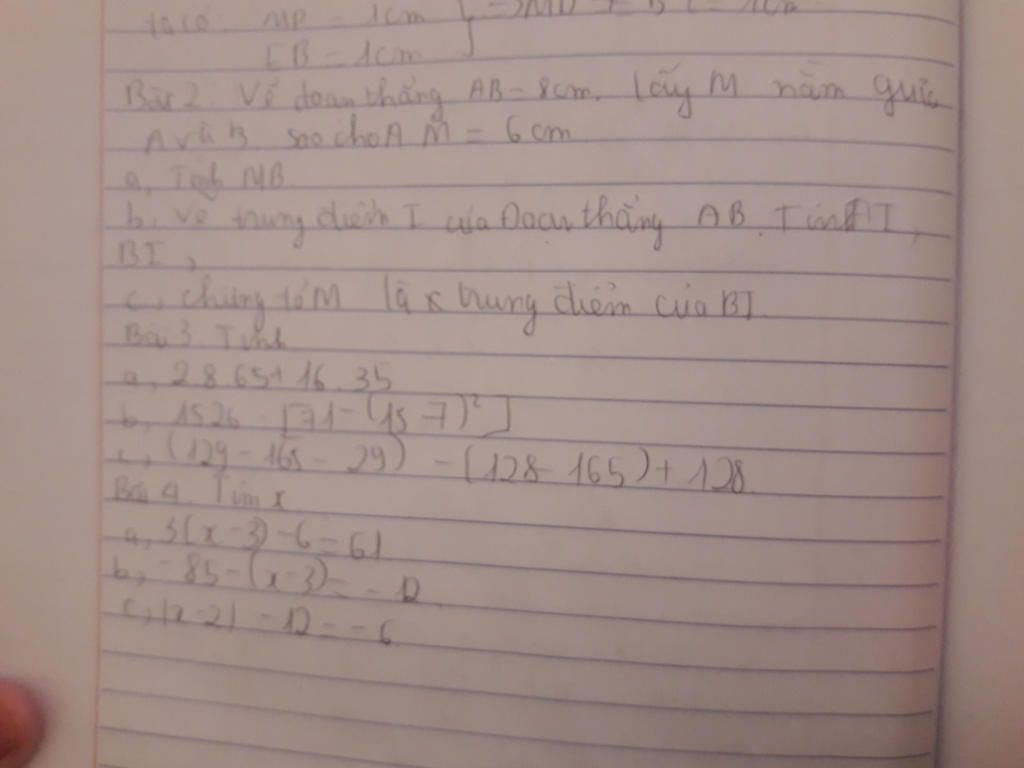 ta có MP = 1cm
IB = 1cm
Bài 2. Vẽ đoạn thẳng AB = 8cm. lấy M nằm giữa
A và B sao cho A M = 6 cm
a, Tính MB
b, Vẽ trung điểm I của Đoạn thẳng AB. Tính AI,
BI,
c, chứng tỏ M là trung điểm của BI
Bài 3 Tính
a, 28.65 + 16.35
b, 1526 - [71 - (15 - 7)²]
c, (129 - 165 - 29) - (128 - 165) + 128
Bài 4. Tìm x
a, 3(x - 3) - 6 = 61
b, - 85 - (x - 3) = - 12
c, |x - 2| - 12 = - 6